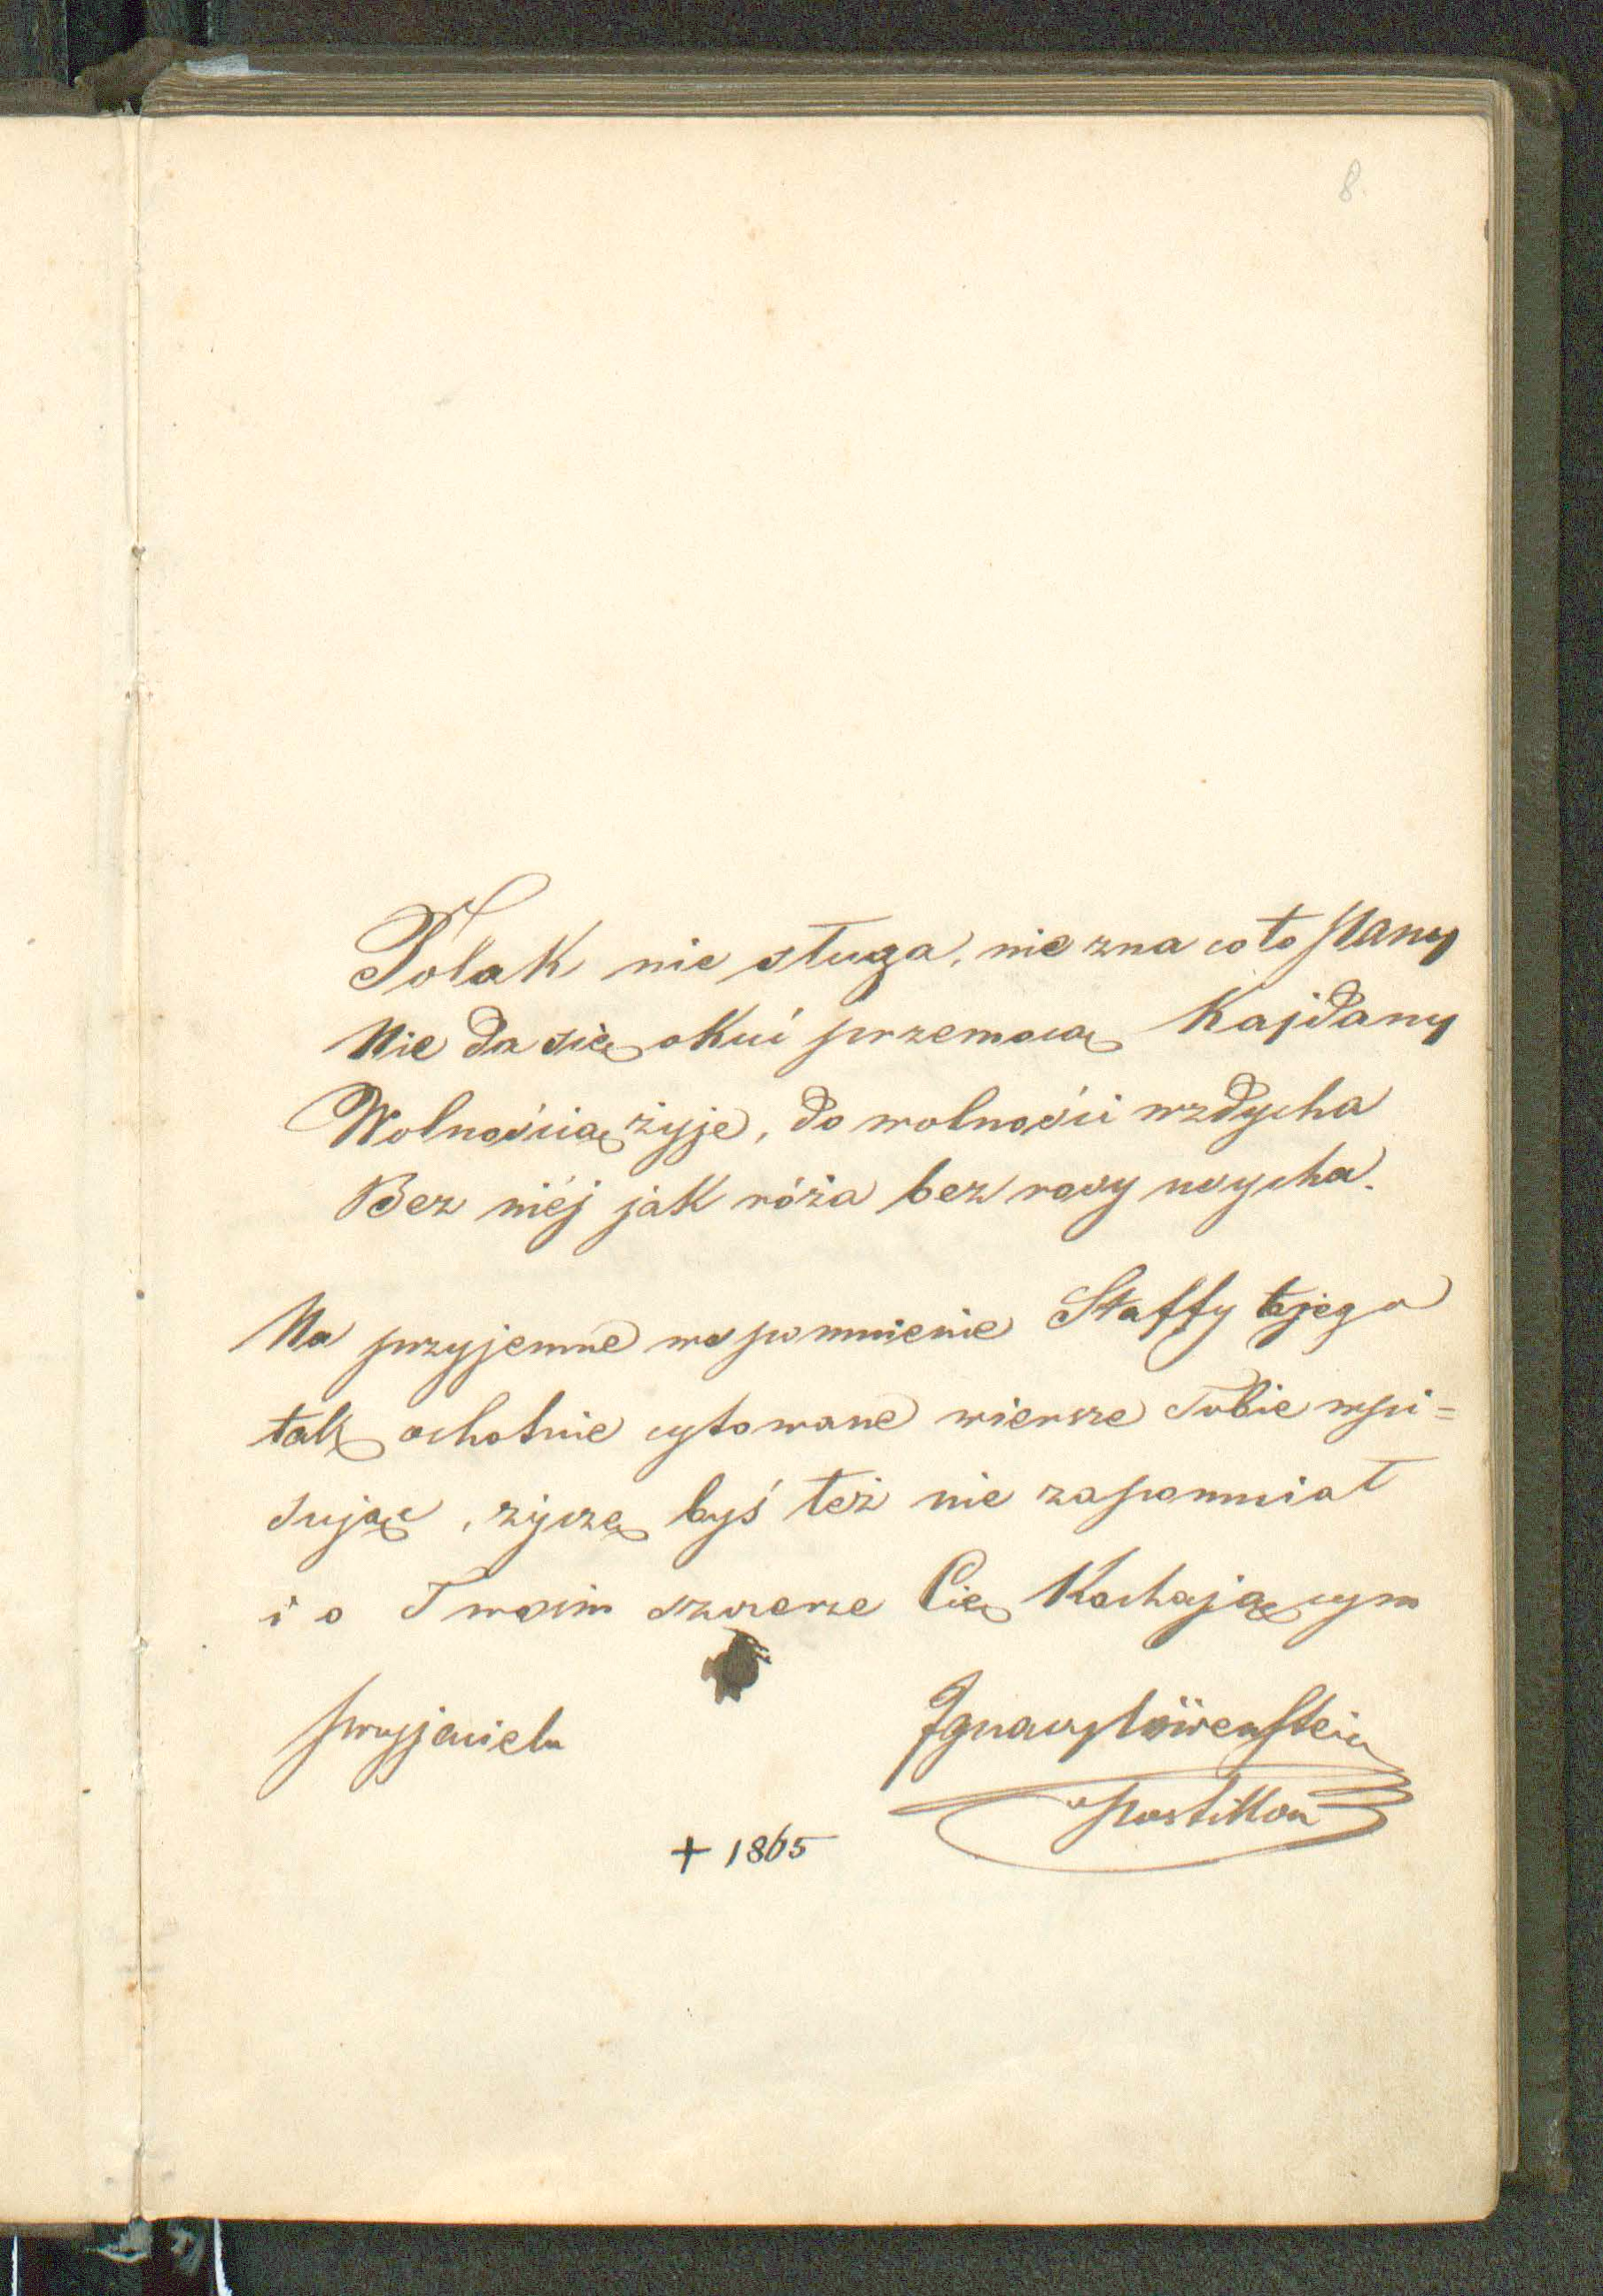 8.
Polak nie sługa, nie zna co to Pany
Nie da się okuć przemocą Kajdany
Wolnością żyje, do wolności wzdycha
Bez niéj jak róża bez rosy usycha.
Na przyjemne wspomnienie Staffy
ochotnie cytowane wiersze Tobie wpi=
sując, życzę byś też nie zapomniał
i o Twoim szczerze Cię Kochającym
przyjacielu
Ignacy Löwenstein
Postillon
+ 1865